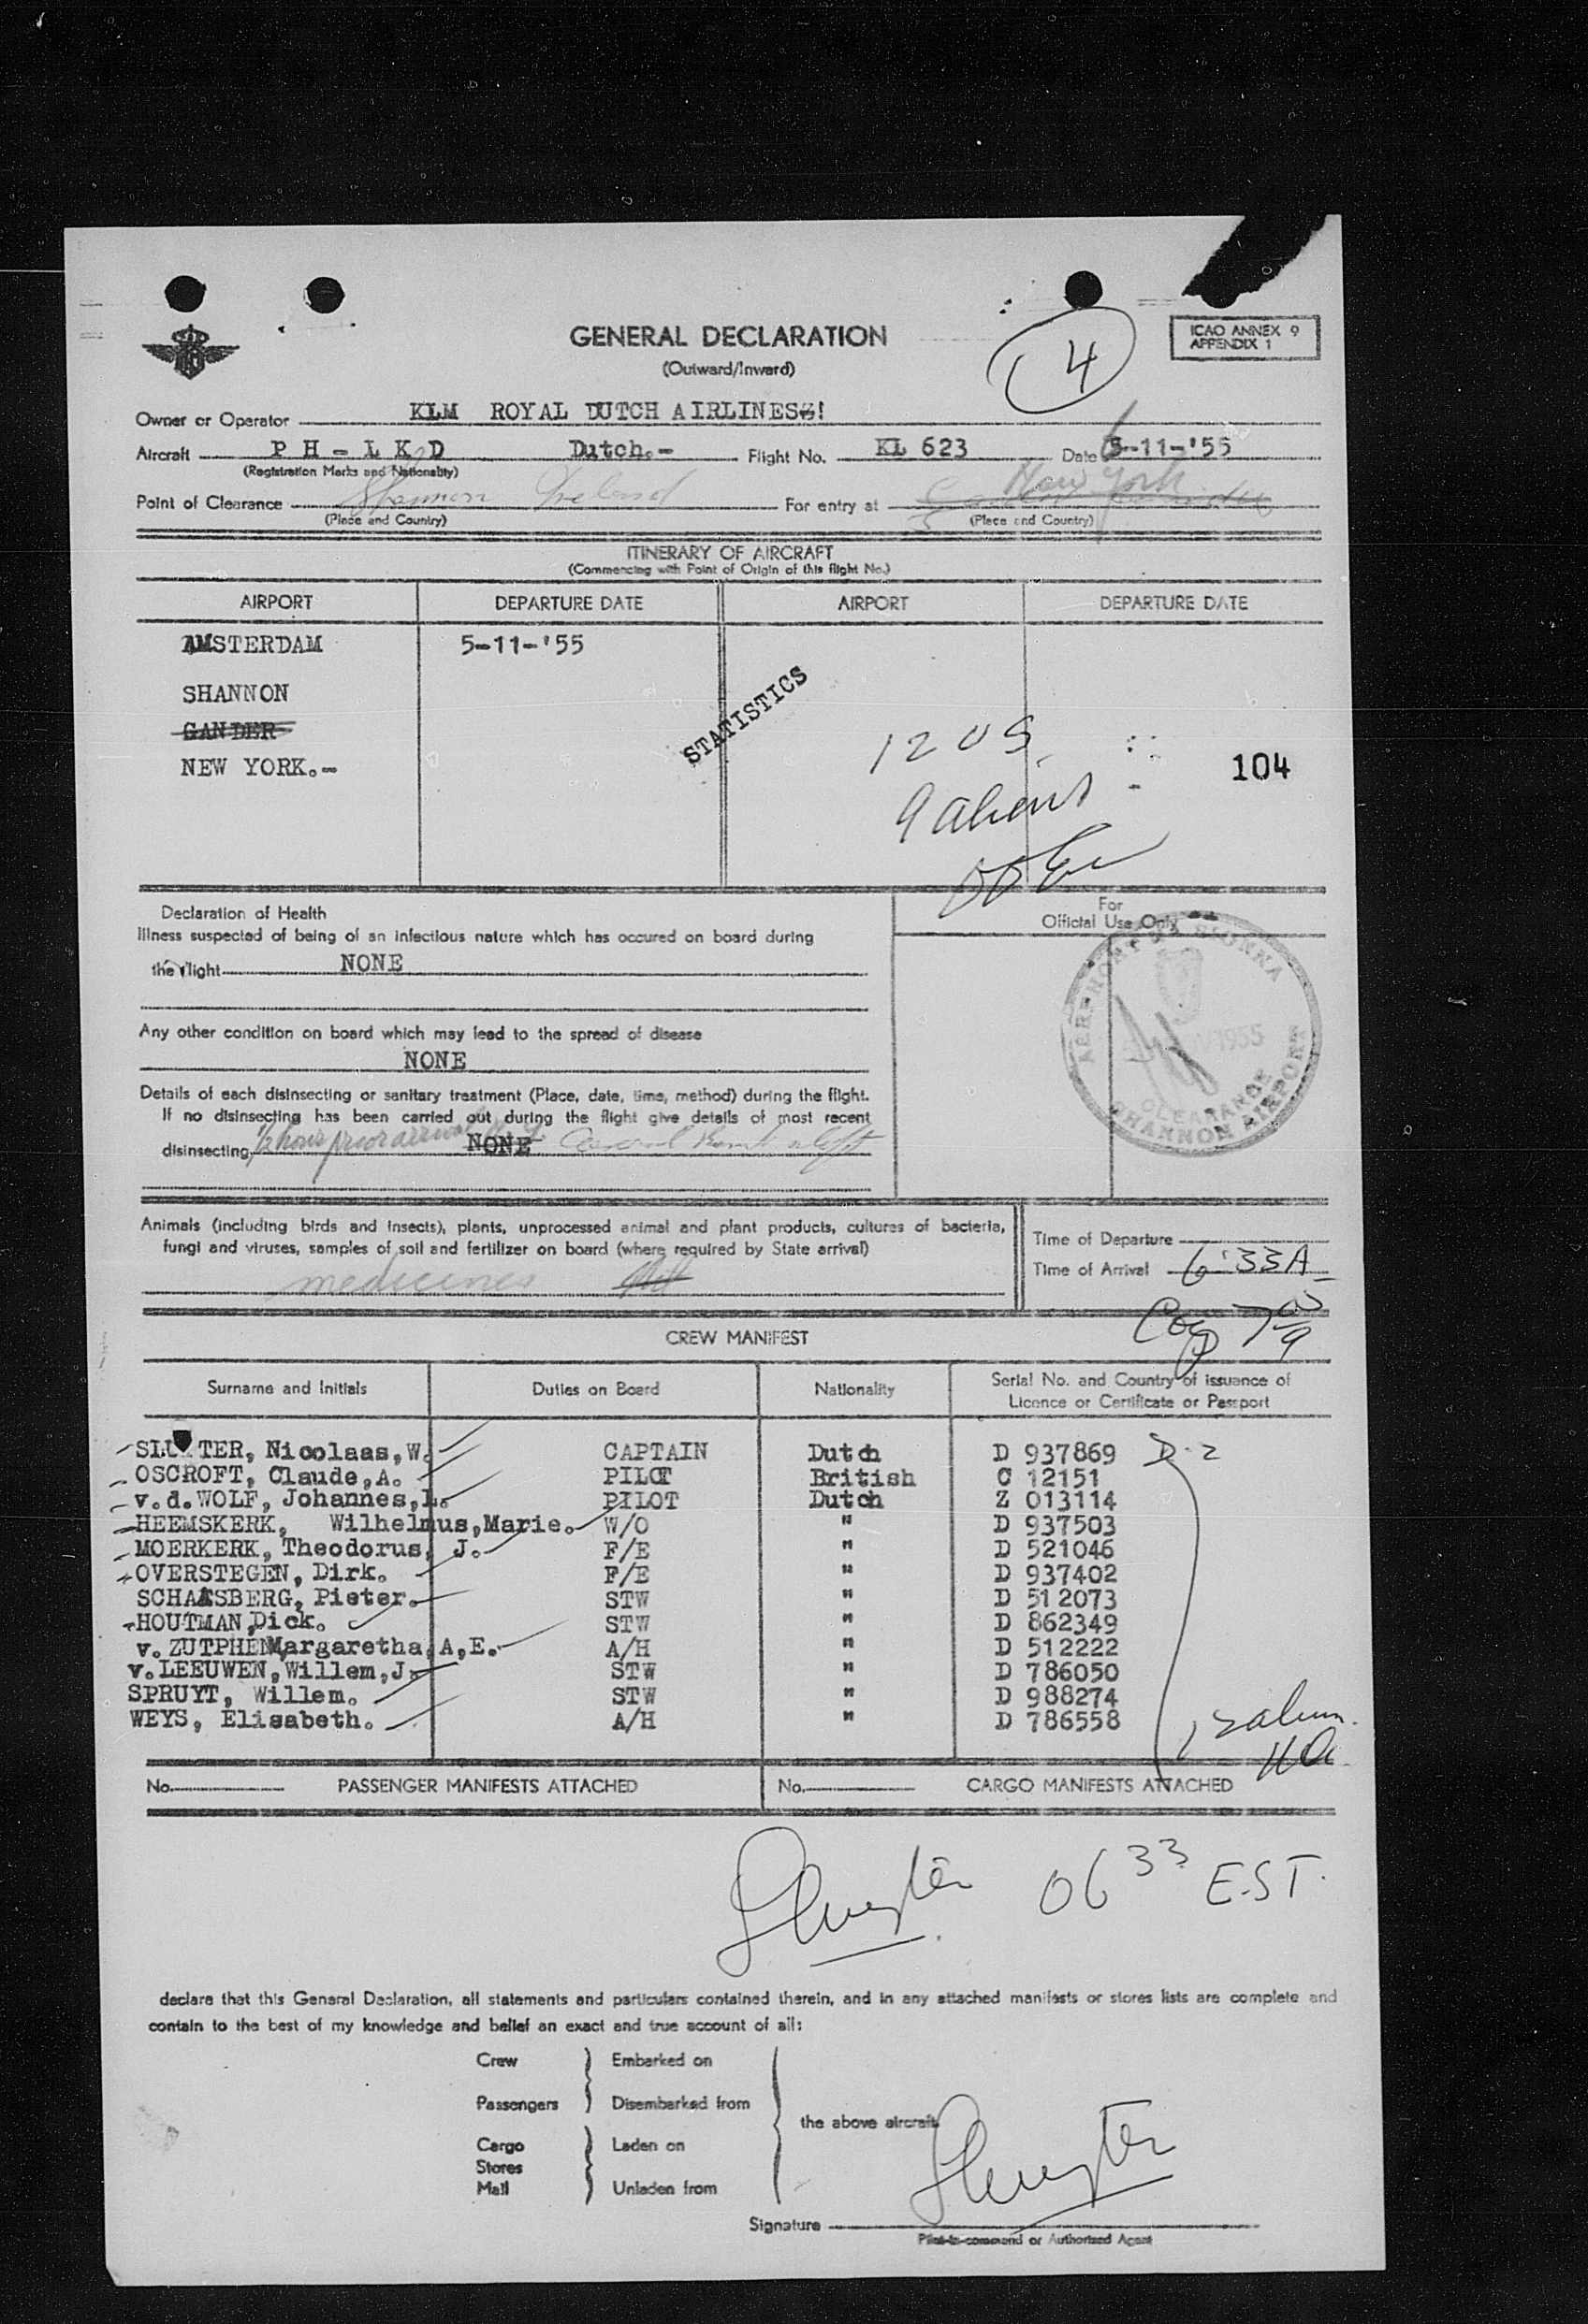 GENERAL DECLARATION
(Outward/Inward)
4
ICAO ANNEX 9
APPENDIX 1
Owner or Operator KLM ROYAL DUTCH AIRLINES!
Aircraft P H - L K D Dutch.- Flight No. KL 623 Date 6-11-'55
(Registration Marks and Nationality)
New York
Point of Clearance Shannon Ireland For entry at
(Place and Country) (Place and Country)
ITINERARY OF AIRCRAFT
(Commencing with Point of Origin of this flight No.)
AIRPORT DEPARTURE DATE AIRPORT DEPARTURE DATE
AMSTERDAM 5-11-'55
SHANNON
GANDER
NEW YORK.-
STATISTICS
12 US
9 aliens
104
Declaration of Health
Illness suspected of being of an infectious nature which has occured on board during
the flight NONE
Any other condition on board which may lead to the spread of disease
NONE
Details of each disinsecting or sanitary treatment (Place, date, time, method) during the flight.
If no disinsecting has been carried out during the flight give details of most recent
disinsecting 1/2 hour prior arrival NONE
For
Official Use Only
1955
CLEARANCE
SHANNON AIRPORT
Animals (including birds and insects), plants, unprocessed animal and plant products, cultures of bacteria,
fungi and viruses, samples of soil and fertilizer on board (where required by State arrival)
medicines
Time of Departure
Time of Arrival 6:33A
CREW MANIFEST
Surname and Initials Duties on Board Nationality Serial No. and Country of issuance of
Licence or Certificate or Passport
SLUYTER, Nicolaas,W. CAPTAIN Dutch D 937869 D-2
OSCROFT, Claude,A. PILOT British C 12151
v.d.WOLF, Johannes,L. PILOT Dutch Z 013114
HEEMSKERK, Wilhelmus,Marie. W/O " D 937503
MOERKERK, Theodorus, J. F/E " D 521046
OVERSTEGEN, Dirk. F/E " D 937402
SCHAASBERG, Pieter. STW " D 512073
HOUTMAN,Dick. STW " D 862349
v. ZUTPHEN,Margaretha,A,E. A/H " D 512222
v.LEEUWEN,Willem,J. STW " D 786050
SPRUYT, Willem. STW " D 988274
WEYS, Elisabeth. A/H " D 786558
No. PASSENGER MANIFESTS ATTACHED No. CARGO MANIFESTS ATTACHED
Sluyter 06 33 E.S.T.
declare that this General Declaration, all statements and particulars contained therein, and in any attached manifests or stores lists are complete and
contain to the best of my knowledge and belief an exact and true account of all:
Crew Embarked on
Passengers Disembarked from
the above aircraft
Cargo Laden on
Stores
Mail Unladen from
Sluyter
Signature
Pilot-in-command or Authorized Agent